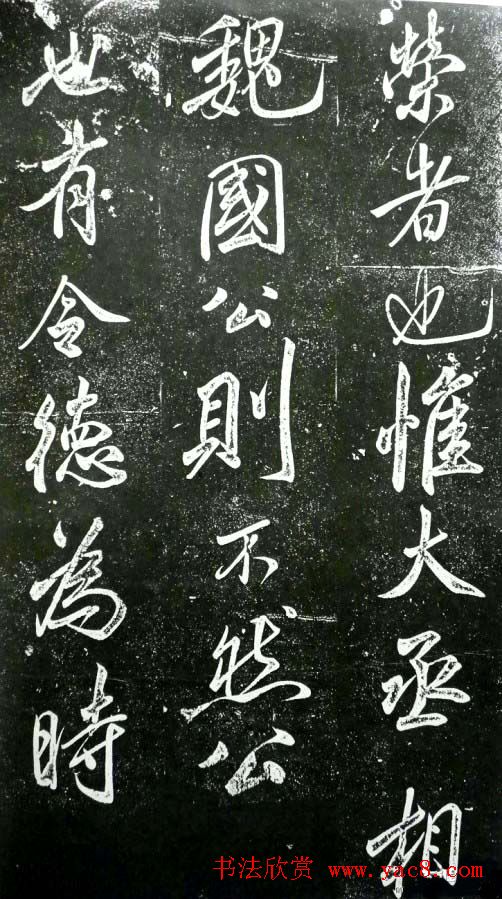 榮者也惟大丞相
魏國公則不然公
也有令德為時
书法欣赏 www.yac8.com